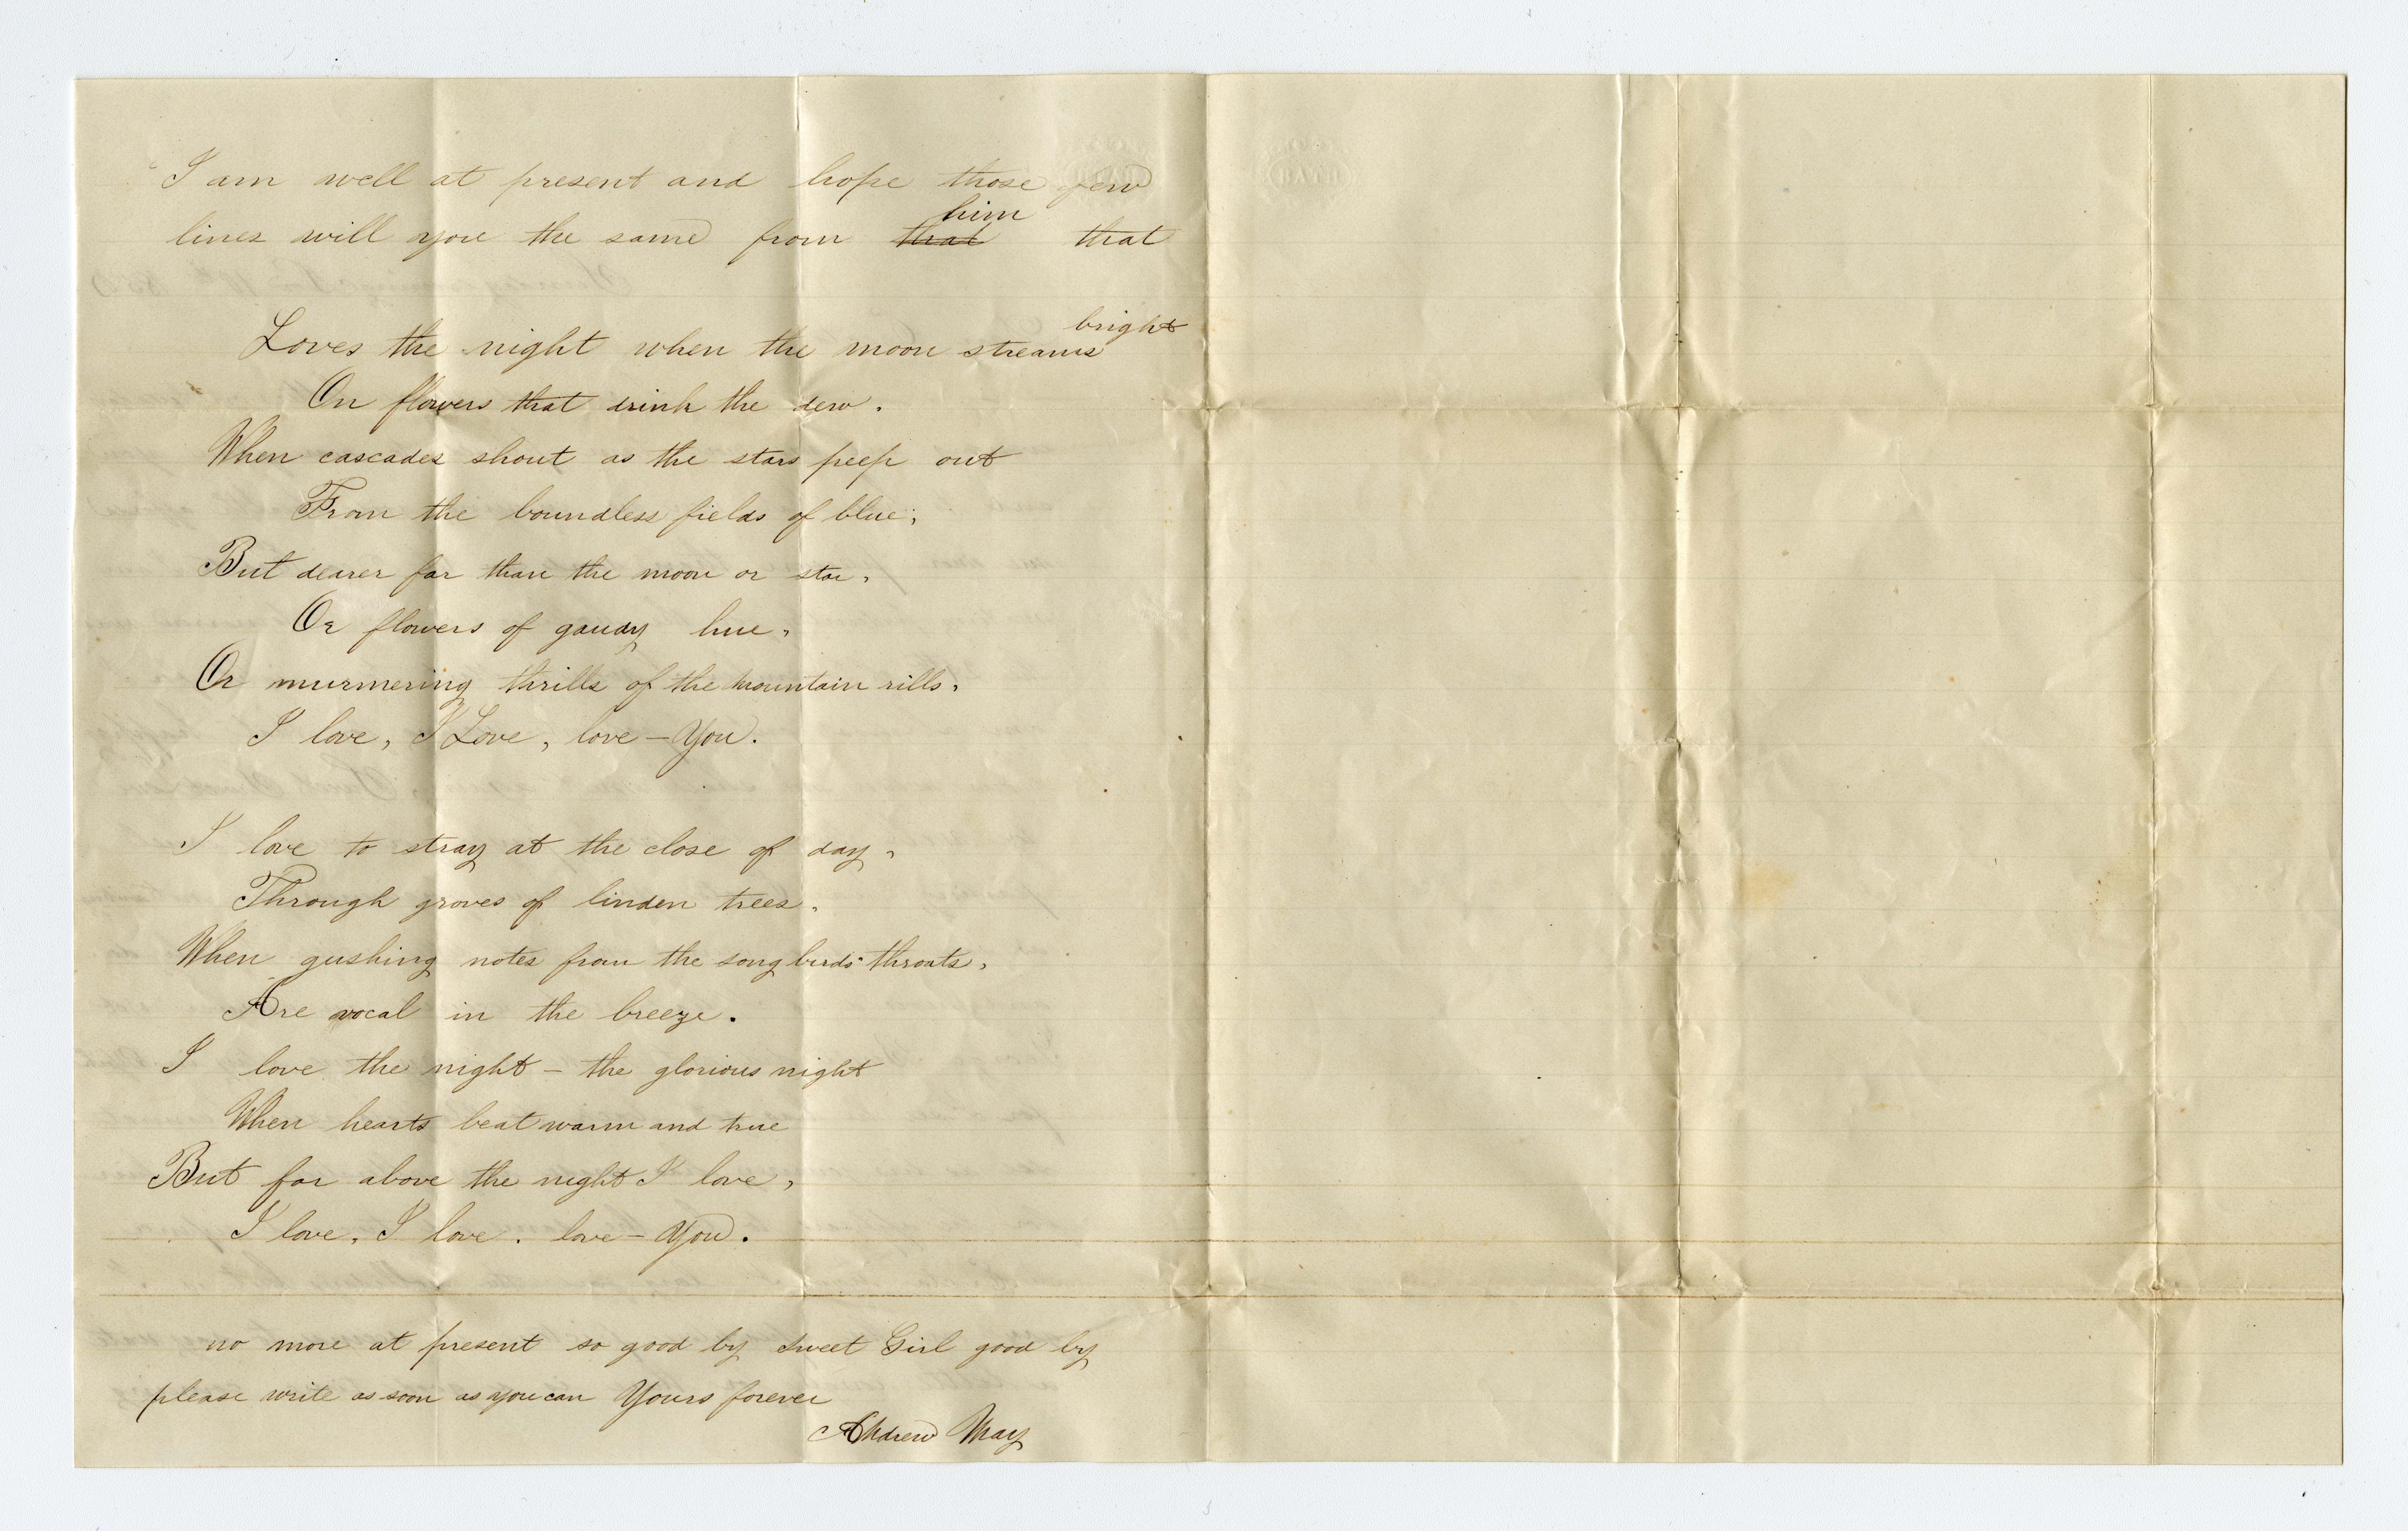 I am well at present and hope those few
lines will you the same from that him that
Loves the night when the moon streams bright
On flowers that drink the dew.
When cascades shout as the stars peep out
From the boundless fields of blue,
But dearer far than the moon or star,
Or flowers of gaudy hue,
Or murmering thrills of the mountain rills,
I love, I Love, love — You.
I love to stray at the close of day,
Through groves of linden trees,
When gushing notes from the song birds' throats,
Are vocal in the breeze.
I love the night — the glorious night
When hearts beat warm and true
But far above the night I love,
I love, I love, love — You.
no more at present so good by sweet Girl good by
please write as soon as you can Yours forever
Andrew May
BATH